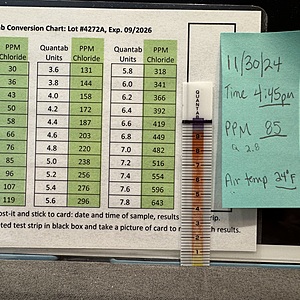 b Conversion Chart: Lot #4272A, Exp. 09/2026
PPM Quantab PPM Quantab PPM
Chloride Units Chloride Units Chloride
30 3.6 131 5.8 318
36 3.8 144 6.0 341
43 4.0 158 6.2 366
50 4.2 172 6.4 392
58 4.4 187 6.6 419
66 4.6 203 6.8 449
76 4.8 220 7.0 482
85 5.0 238 7.2 516
96 5.2 256 7.4 554
107 5.4 276 7.6 596
119 5.6 296 7.8 643
ost-it and stick to card: date and time of sample, results
rip.
ted test strip in black box and take a picture of card to
h results.
QUANTAB
11/30/24
Time 4:45pm
PPM 85
Q 2.8
Air temp 24°F